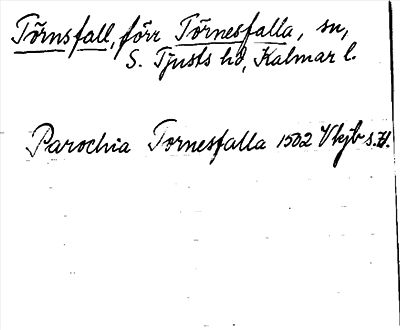 Törnsfall, förr Törnesfalla, sn,
S. Tjusts hd, Kalmar l.
Parochia Tornesfalla 1502 Vkjb s.